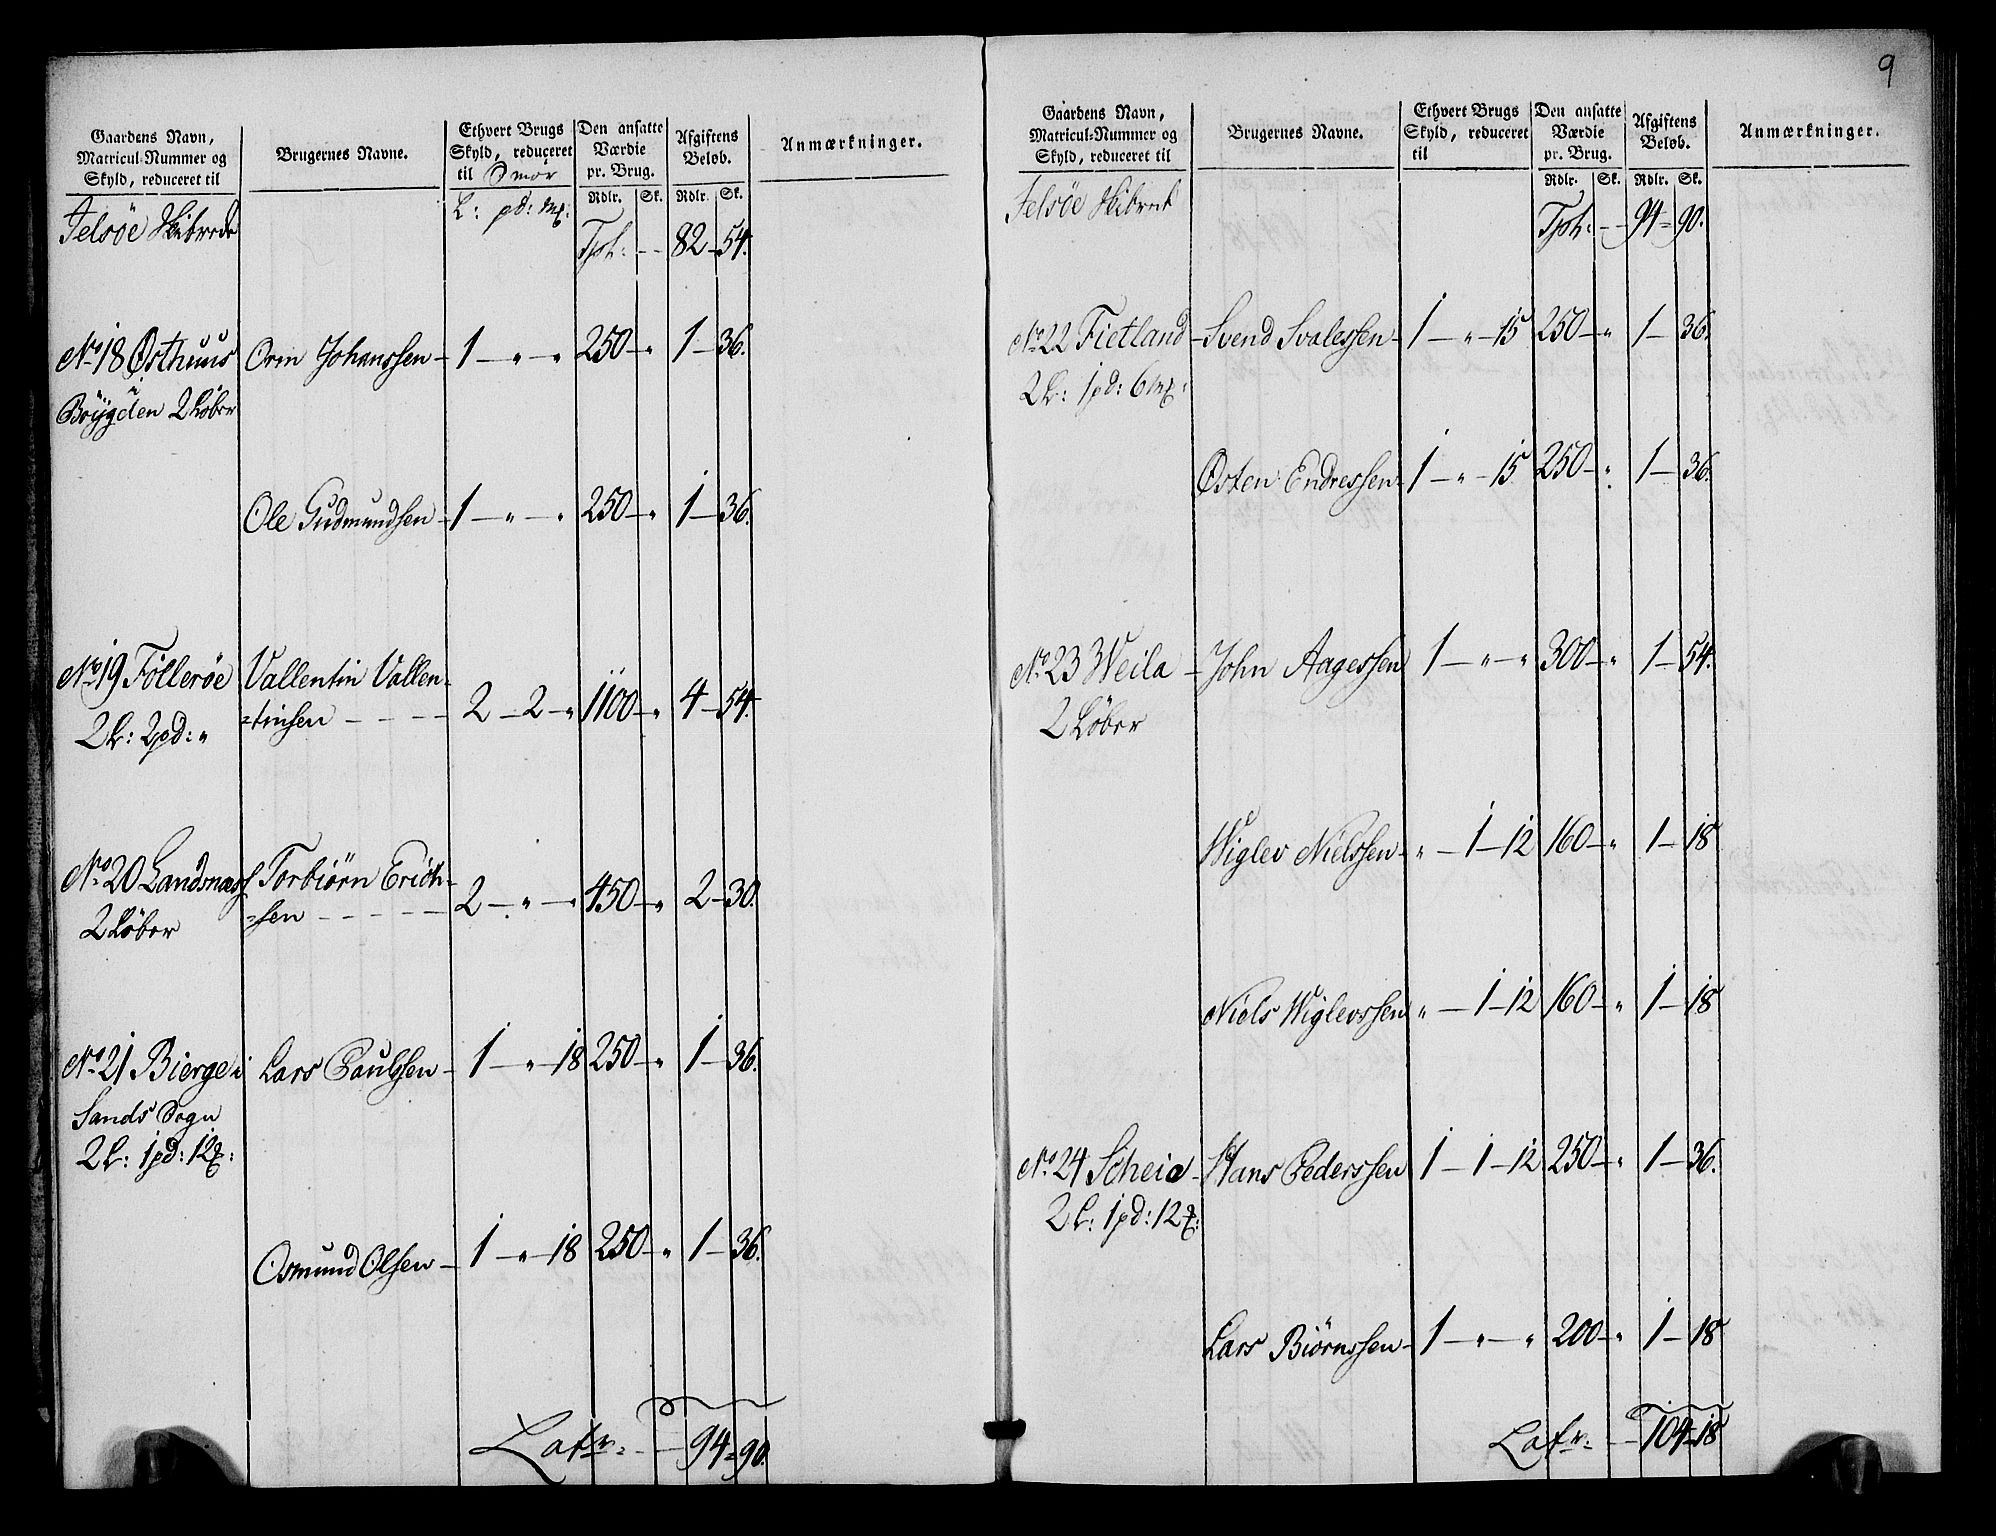 Gaardens Navn, Matricul-Nummer og Skyld, reduceret til
Brugernes Navne.
Ethvert Brugs Skyld, reduceret til Smör
Den ansatte Værdie pr. Brug.
Afgiftens Beløb.
Anmærkninger.
Rdlr. Sk. Rdlr. Sk.
Jelsöe Skibrede L: pd: mf:
Tpt: -- 82 - 54.
No 18 Østhuus Orm Johanssen - 1 - " - " 250 - " 1 - 36.
i
Bÿgden 2 Løber
Ole Gudmundsen - 1 - " - " 250 - " 1 - 36.
No 19 Fölleröe Vallentin Vallen-
2 L: 2 pd: " =tinsen - - - - 2 - 2 - " 1100 - " 4 - 54.
No 20 Landsnæss Torbiörn Erich-
2 Löber =sen - - - - 2 - " - " 450 - " 2 - 30.
No 21 Bierge i Lars Paulssen - 1 - " - 18 250 - " 1 - 36.
Sands Sogn
2 L: 1 pd: 12
Osmund Olsen - 1 - " - 18 250 - " 1 - 36.
Latr: - - 94 = 90.
9
Gaardens Navn, Matricul-Nummer og Skyld, reduceret til
Brugernes Navne.
Ethvert Brugs Skyld, reduceret til
Den ansatte Værdie pr. Brug.
Afgiftens Beløb.
Anmærkninger.
Rdlr. Sk. Rdlr. Sk.
Jelsöe Skibred
Tpt: -- 94 = 90.
No 22 Fietland - Svend Svalessen - 1 - " - 15 250 - " 1 - 36.
2 L: 1 pd: 6 mf:
Østen Endressen - 1 - " - 15 250 - " 1 - 36.
No 23 Weila - John Aagessen 1 - " - " 300 - " 1 - 54.
2 Löber
Wiglev Nielssen - " - 1 - 12 160 - " 1 - 18
Niels Wiglevssen " - 1 - 12 160 - " 1 - 18
No 24 Scheie - Hans Pederssen 1 - 1 - 12 250 - " 1 - 36.
2 L: 1 pd: 12
Lars Biörnssen - 1 - " - " 200 - " 1 - 18
Latr: - 104 = 18